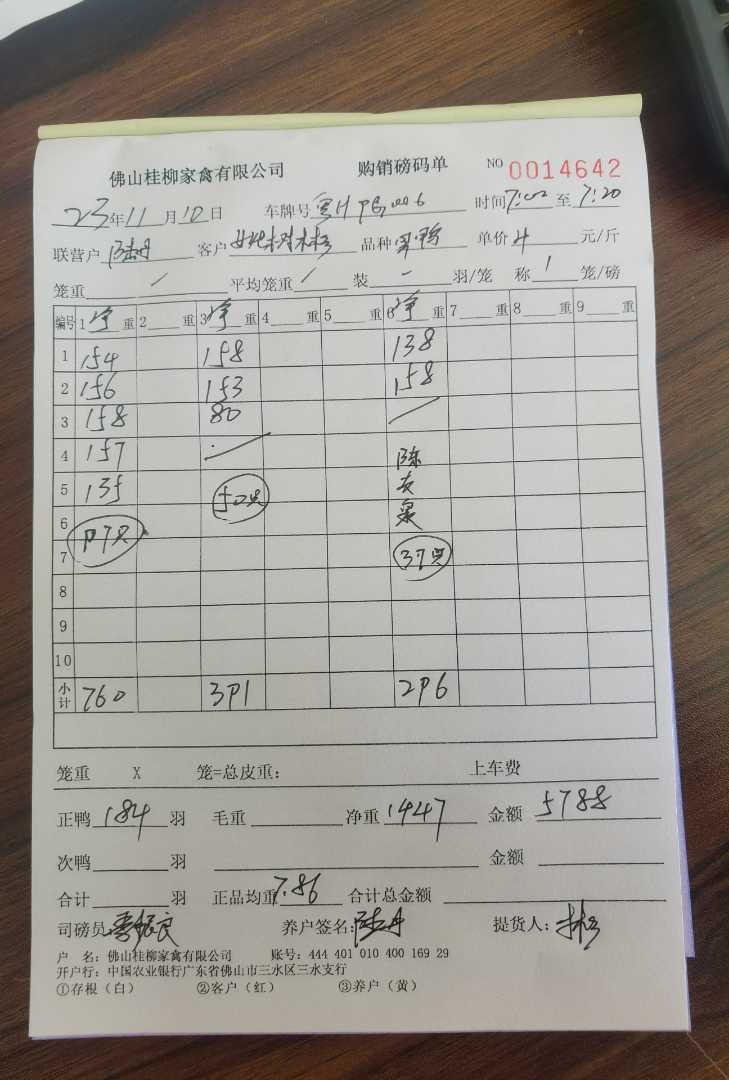 佛山桂柳家禽有限公司 购销磅码单 NO 0014642
23年11月10日 车牌号 时间7:02至7:20
联营户 客户 品种 单价4 元/斤
笼重 / 平均笼重 / 装 - 羽/笼 称 1 笼/磅
编号 1净重 2 重 3净重 4 重 5 重 6净重 7 重 8 重 9 重
1 154 158 138
2 156 153 158
3 158 80 /
4 157 / 陈
5 135 50只 友
6 97只 泉
7 37只
8
9
10
小计 760 391 296
笼重 X 笼=总皮重: 上车费
正鸭 184 羽 毛重 净重 1447 金额 5788
次鸭 羽 金额
合计 羽 正品均重 7.86 合计总金额
司磅员: 养户签名: 提货人:
户 名: 佛山桂柳家禽有限公司 账号: 444 401 010 400 169 29
开户行: 中国农业银行广东省佛山市三水区三水支行
①存根(白) ②客户(红) ③养户(黄)